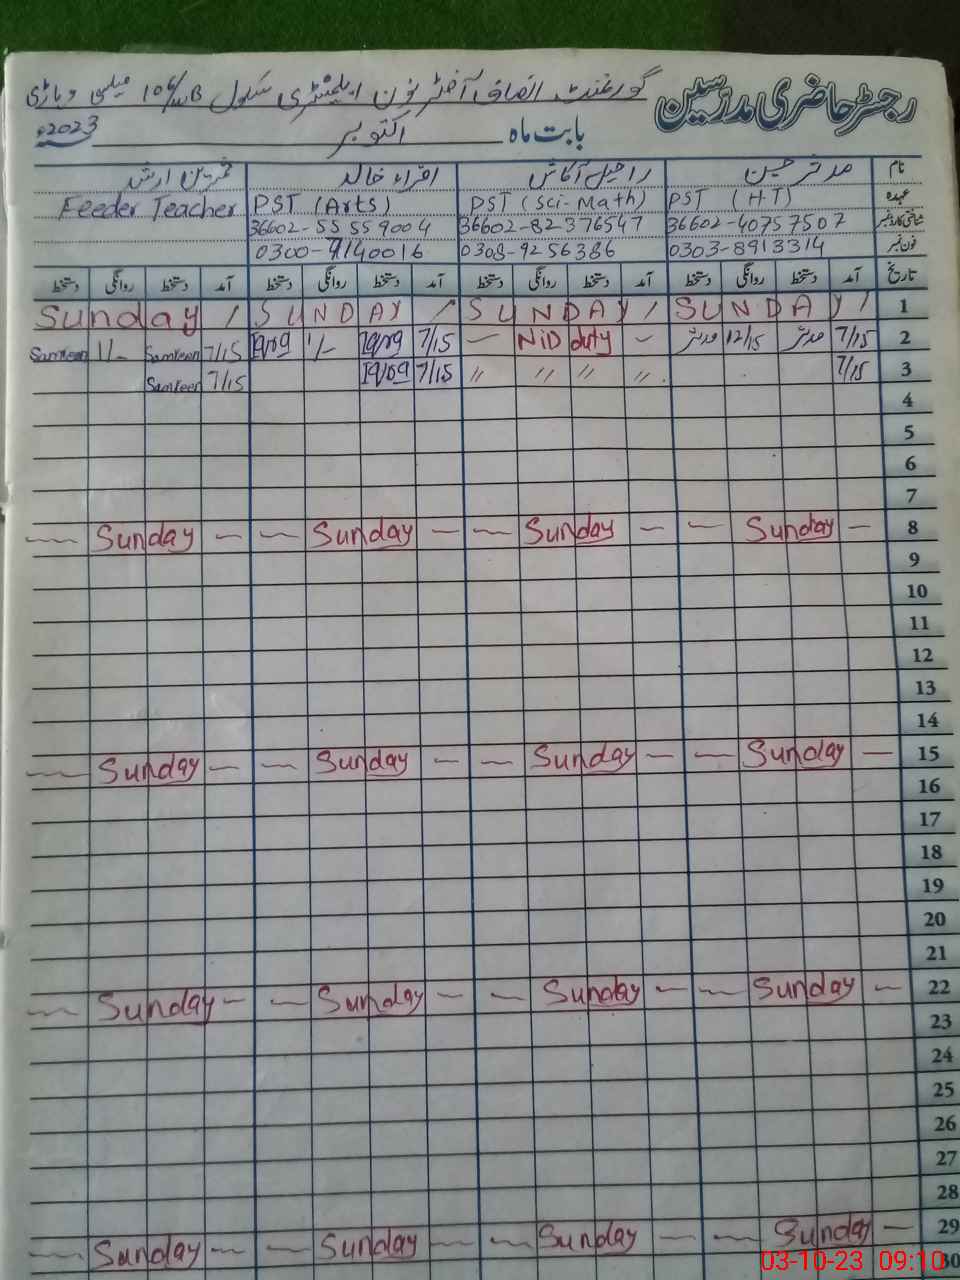 رجسٹر حاضری مدرسین گورنمنٹ انصاف آفٹر نون ایلیمنٹری سکول 106/WB میلسی وہاڑی
بابت ماہ اکتوبر 2023ء
نام مدثر حسین راحیل آکاش اقراء خالد ثمرین ارشد
عہدہ PST (H T) PST (Sci-Math) PST (Arts) Feeder Teacher
شناختی کارڈ نمبر 36602-4075 7507 36602-82 376547 36602-55 55 9004
فون نمبر 0303-8913314 0308-92 56386 0300-7140016
تاریخ آمد دستخط روانگی دستخط آمد دستخط روانگی دستخط آمد دستخط روانگی دستخط آمد دستخط روانگی دستخط
1 SUNDAY / SUNDAY / SUNDAY / Sunday /
2 7/15 مدثر 12/15 مدثر — NiD duty — 7/15 Iqra 1/- Iqra 7/15 Samreen 1/- Samreen
3 7/15 〃 〃 〃 〃 7/15 Iqra 7/15 Samreen
4
5
6
7
8 — Sunday — — Sunday — — Sunday — — Sunday —
9
10
11
12
13
14
15 — Sunday — — Sunday — — Sunday — — Sunday —
16
17
18
19
20
21
22 — Sunday — — Sunday — — Sunday — — Sunday —
23
24
25
26
27
28
29 — Sunday — — Sunday — — Sunday — — Sunday —
30
03-10-23 09:10